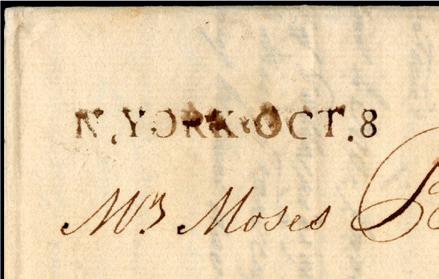 N.YORK*OCT.8
Mr. Moses